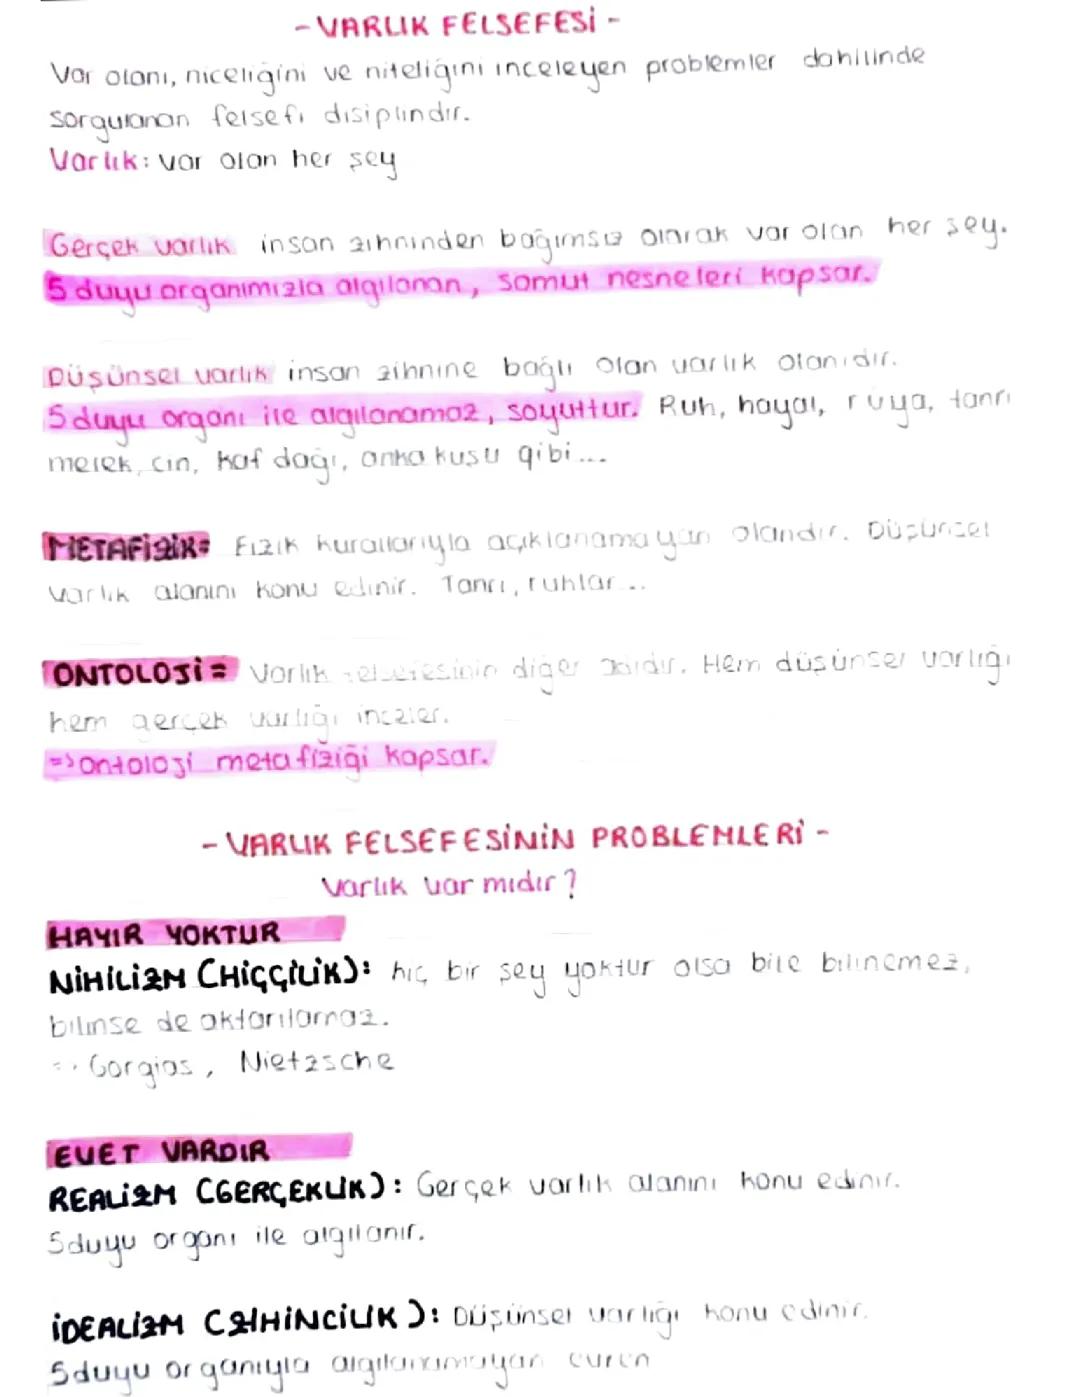 - VARLIK FELSEFESİ -
Var olanı, niceliğini ve niteliğini inceleyen problemler dahilinde
sorgulanan felsefi disiplindir.
Varlık: var olan her şey
Gerçek varlık insan zihninden bağımsız olarak var olan her şey.
5 duyu organımızla algılanan, somut nesneleri kapsar.
Düşünsel varlık insan zihnine bağlı olan varlık olanıdır.
5 duyu organı ile algılanamaz, soyuttur. Ruh, hayal, rüya, tanrı
melek, cin, kaf dağı, anka kuşu gibi...
METAFİZİK= Fizik kurallarıyla açıklanamayan olandır. Düşünsel
varlık alanını konu edinir. Tanrı, ruhlar...
ONTOLOJİ= Varlık felsefesinin diğer adıdır. Hem düşünsel varlığı
hem gerçek varlığı inceler.
=> ontoloji metafiziği kapsar.
- VARLIK FELSEFESİNİN PROBLEMLERİ -
Varlık var mıdır?
HAYIR YOKTUR
NİHİLİZM (HİÇÇİLİK): hiç bir şey yoktur olsa bile bilinemez,
bilinse de aktarılamaz.
Gorgias, Nietzsche
EVET VARDIR
REALİZM (GERÇEKLİK): Gerçek varlık alanını konu edinir.
5 duyu organı ile algılanır.
İDEALİZM (ZİHİNCİLİK): Düşünsel varlığı konu edinir.
5 duyu organıyla algılanamayan evren